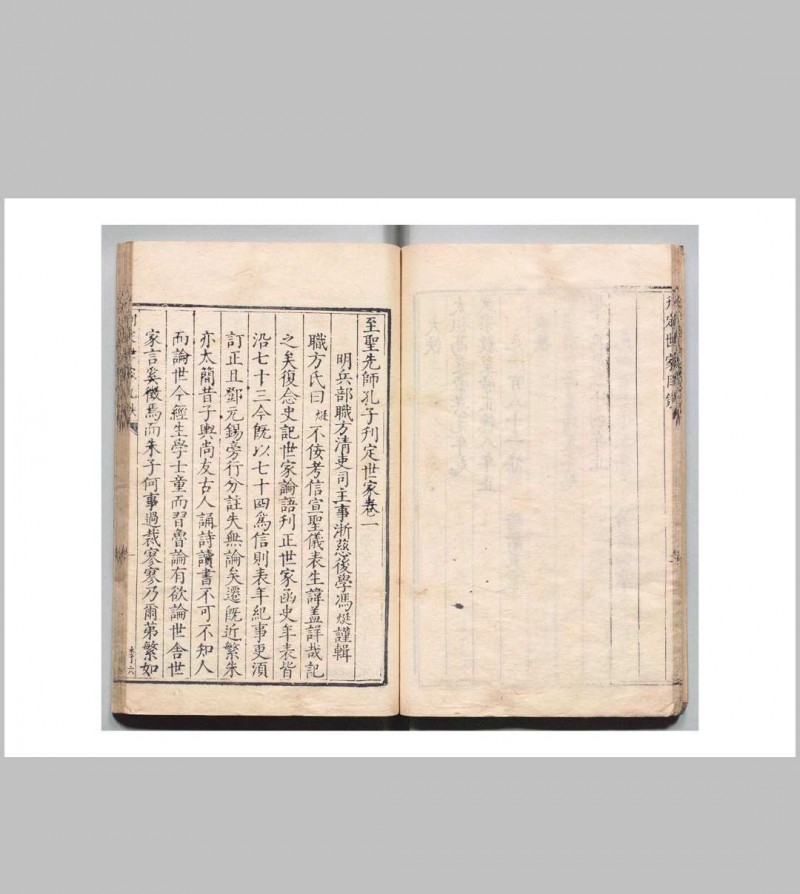 刊定世家目錄
至聖先師孔子刊定世家卷一
明兵部職方清吏司主事浙慈後學馮烶謹輯
職方氏曰烶不佞考信宣聖儀表生諱盖詳哉記
之矣復念史記世家論語刊正世家函史年表皆
沿七十三今旣以七十四爲信則表年紀事更須
訂正且鄧元錫旁行分註失無論矣遷旣近繁朱
亦太簡昔子輿尚友古人誦詩讀書不可不知人
而論世今經生學士童而習魯論有欲論世舍世
家言奚徵焉而朱子何事過裁寥寥乃爾第繁如